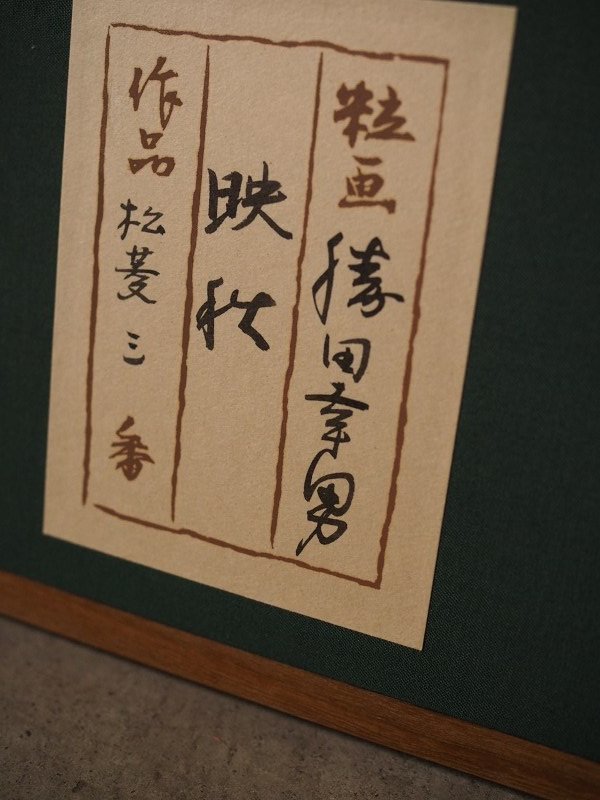 粒画 勝田幸男
映秋
作品 松菱三番